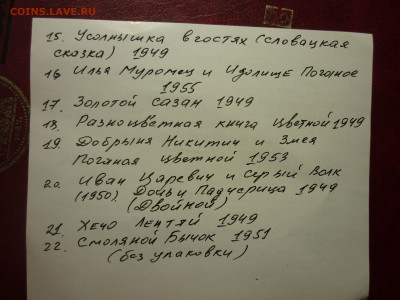 COINS.LAVE.RU
15. Усолнышка вгостях (словацкая
сказка) 1949
16 Илья Муромец и Идолище Поганое
1955
17. Золотой Сазан 1949
18. Разноцветная книга Цветной 1949
19. Добрыня Никитич и Змея
Поганая цветной 1953
20. Иван Царевич и Серый Волк
(1950). Дочь и Падчерица 1949
(Двойной)
21. Хечо Лентяй 1949
22. Смоляной Бычок 1951
(без упаковки)